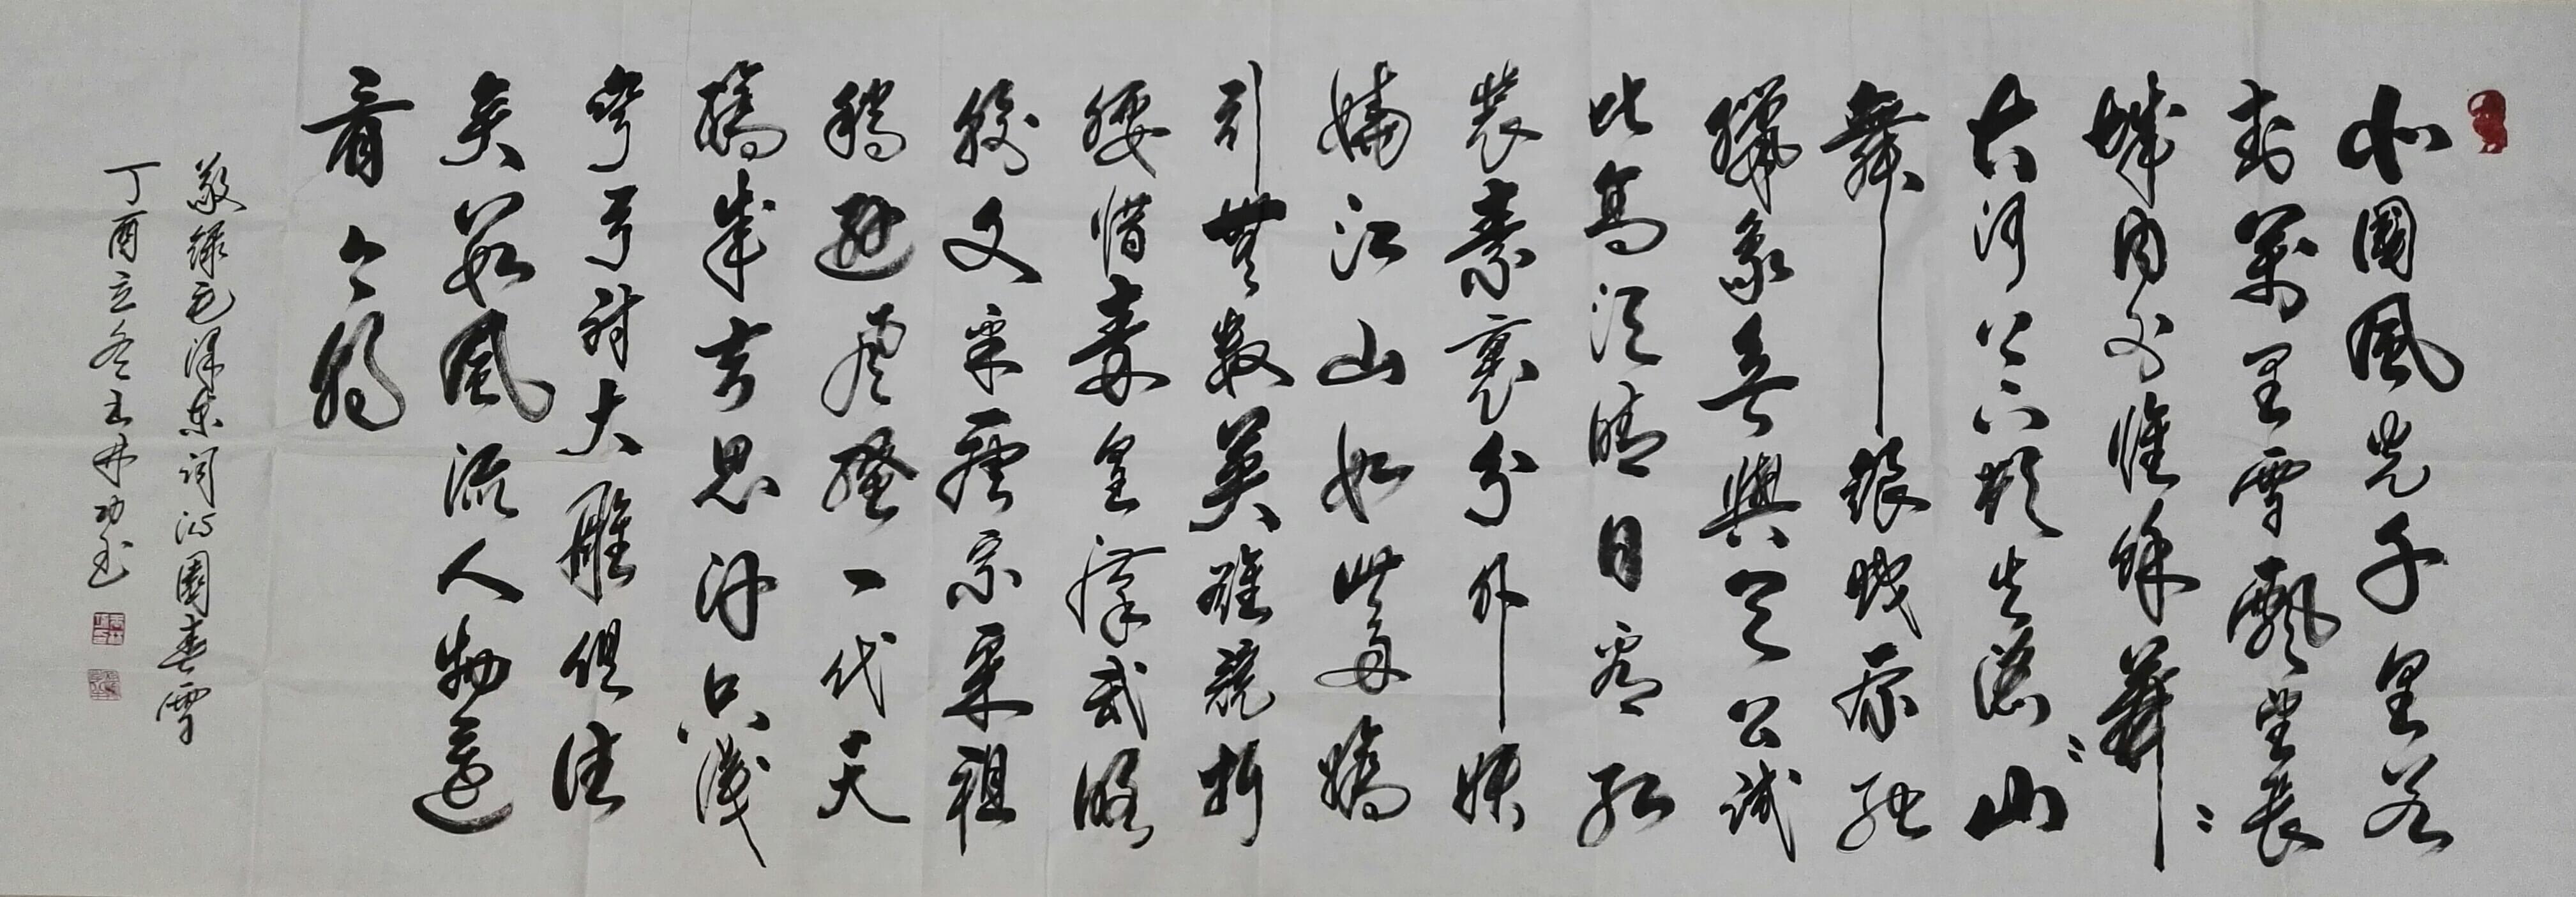 北國風光千里冰
封萬里雪飄望長
城内外惟餘莽〻
大河上下頓失滔〻山
舞銀蛇原馳
蠟象欲與天公試
比高須晴日看紅
裝素裹分外妖
嬈江山如此多嬌
引無數英雄競折
腰惜秦皇漢武略
輸文采唐宗宋祖
稍遜風騷一代天
驕成吉思汗只識
彎弓射大雕俱往
矣數風流人物還
看今朝
敬錄毛澤東詞沁園春雪
丁酉立冬